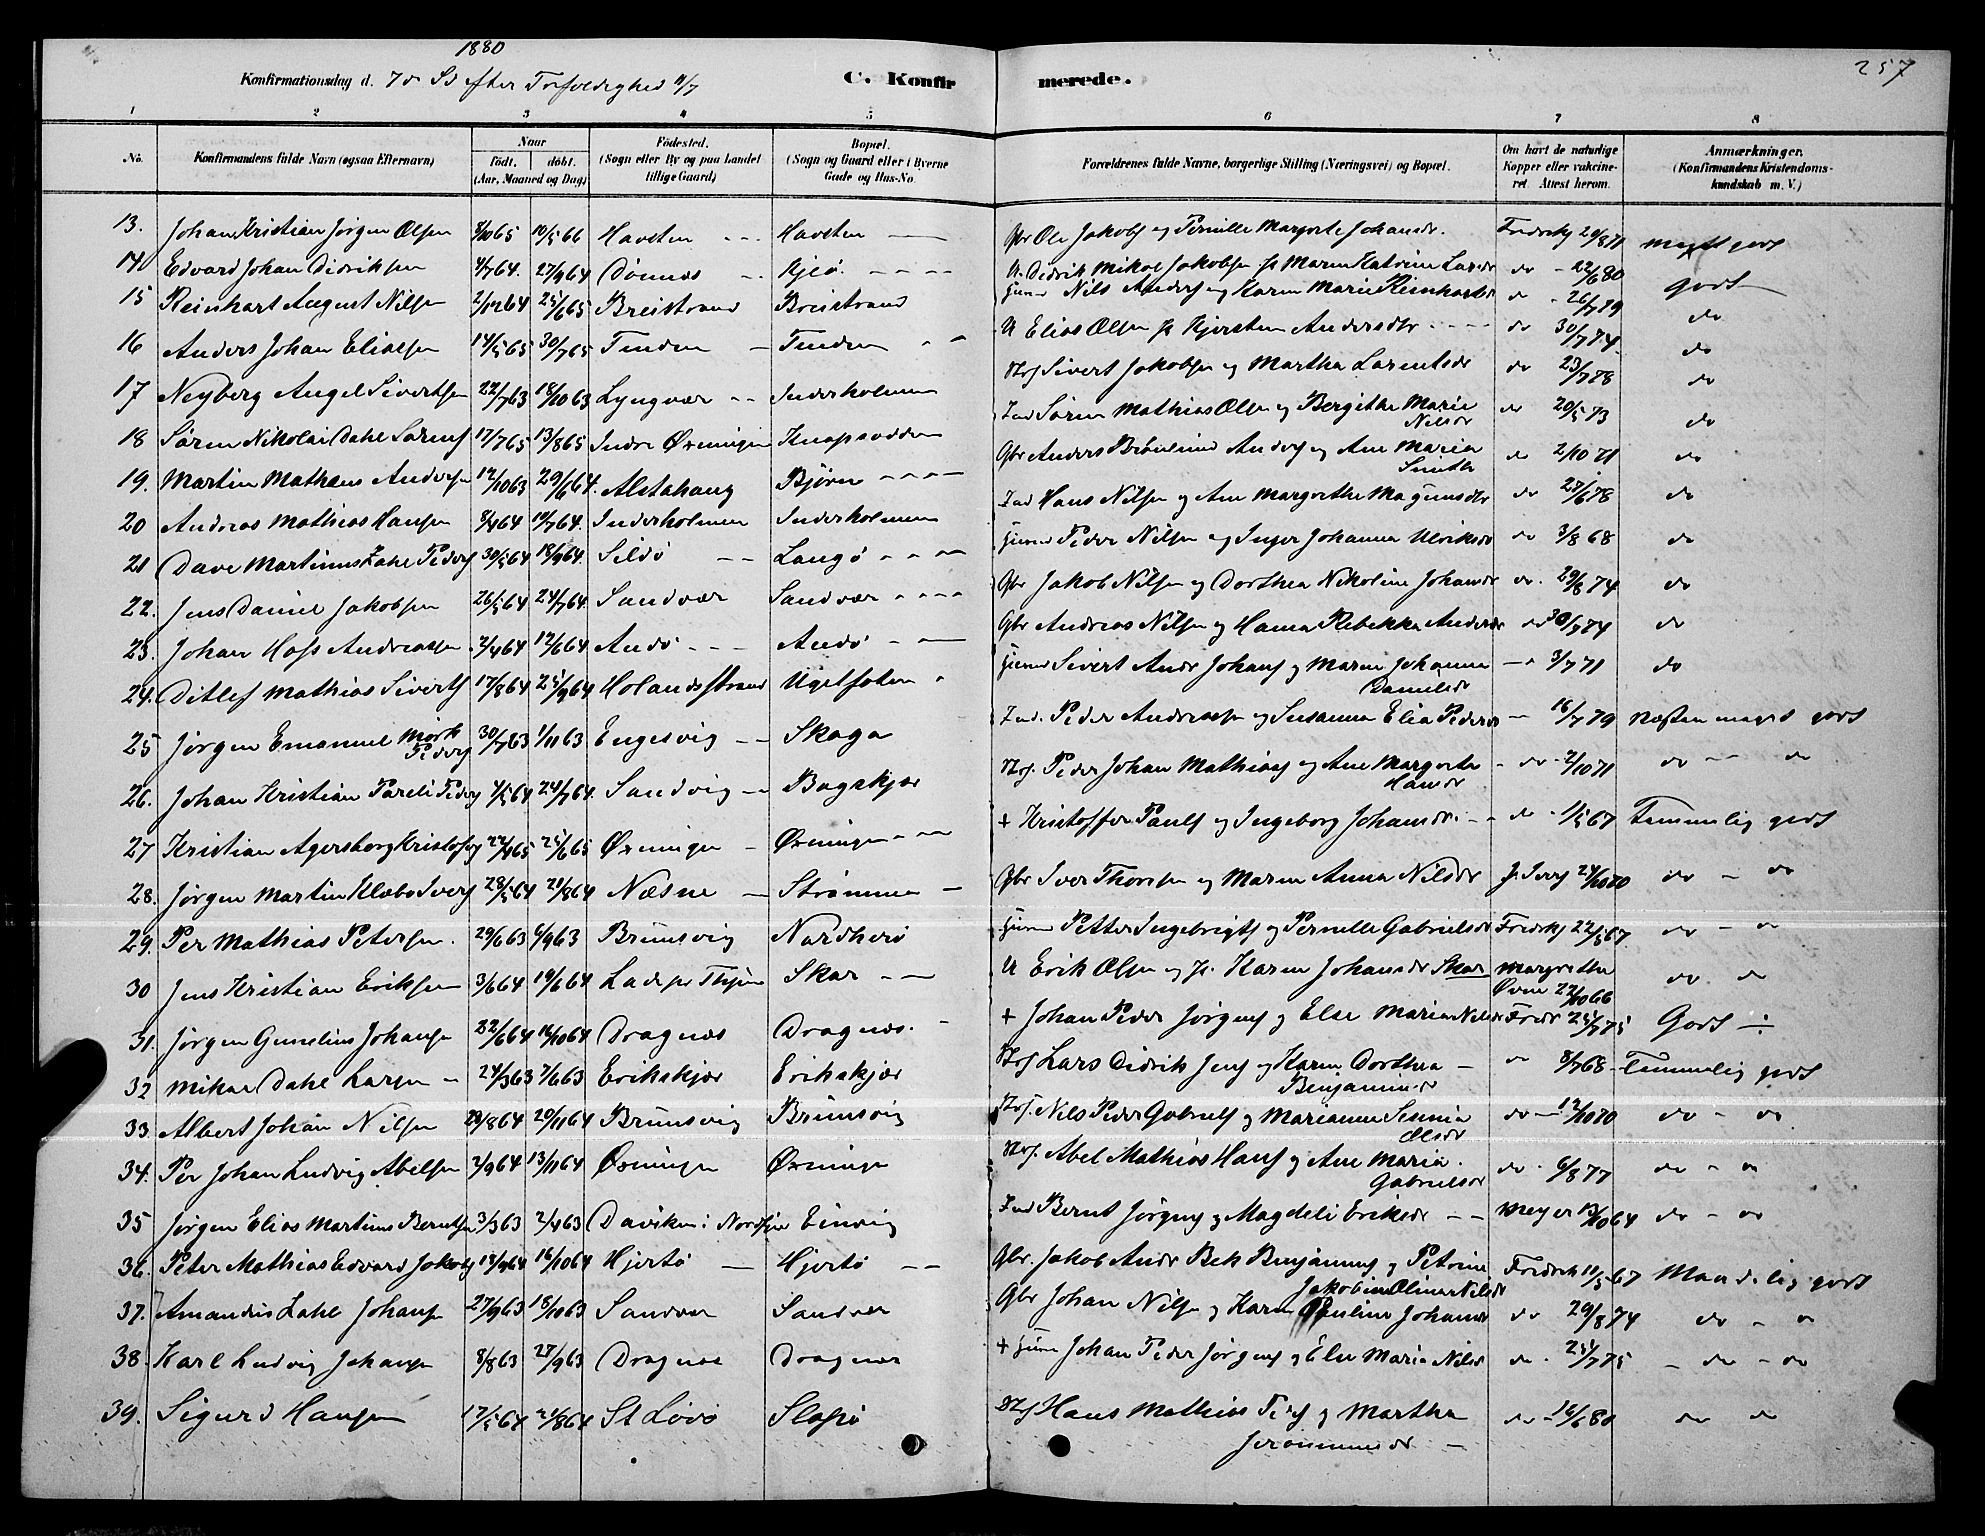 1880
257
Konfirmationsdag d. 7de Sd efter Trefoldighed 11/7 C. Konfirmerede.
1 2 3 4 5 6 7 8
No. Konfirmandens fulde Navn (ogsaa Efternavn) Naar født. døbt. (Aar, Maaned og Dag) Fødested. (Sogn eller By og paa Landet tillige Gaard) Bopæl. (Sogn og Gaard eller i Byerne Gade og Hus-No. Forældrenes fulde Navne, borgerlige Stilling (Næringsvei) og Bopæl. Om havt de naturlige Kopper eller vakcineret. Attest herom. Anmærkninger. (Konfirmandens Kristendomskundskab m. V.)
13. Johan Kristian Jørgen Olsen 8/10 65 10/5 66 Havsten Havsten Gbr Ole Jakobs og Pernille Margrete Johansdr. Fredrks 29/8 71 meget godt
14 Edvard Johan Didriksen 4/7 64. 27/9 64 Dønnes Kjeø U. Didrik Mikal Jakobsen P Maren Katrine Larsdr do - 22/6 80 godt
15 Reinhart August Nilsen 2/12 64 25/6 65 Breistrand Breistrand Nils Anders og Karen Marie Reinhartsdr do - 26/7 79 do
16 Anders Johan Eliassen 14/5 65 30/7 65 Tenden Tenden U Elias Olsen P Kjersten Andersdtr do 30/7 74. do
17 Neyberg Angel Sivertsen 22/7 63 18/10 63 Lyngvær Inderholmen Sivert Jakobsen og Martha Larentsdr do 23/7 78 do
18 Søren Nikolai Dahl Sørens 17/7 65 13/8 65 Indre Øxningen Knapsodden Ind Søren Mathias Olsen og Bergithe Marie Nilsdr do 20/5 73 do
19. Martin Mathæus Andersen 12/10 63 29/6 64. Alstahaug Bjørn Gbr Anders Anders og Ane Maria do 2/10 71 do
20 Andreas Mathias Hansen 8/4 64 10/7 64. Inderholmen Inderholmen Ind Hans Nilsen og Ane Margrethe Magnusdtr do 27/6 78 do
21 Dave Martinus Zahl Peders 30/5 64 18/9 64. Sildø Langø Peder Nilsen og Inger Johanna Ulriksdr do 3/8 68 do
22. Jens Daniel Jakobsen 26/5 64 24/7 64. Sandvær Sandvær Gbr Jakob Nilsen og Dorthea Nikoline Johansdr do. 29/8 74 do
23. Johan Hass Andreassen 2/4 64 12/6 64 Andø Andø Gbr Andreas Nilsen og Hanna Rebekka Andersdr do 30/7 74 do
24. Ditlef Mathias Siverts 17/8 64 25/9 64 Holandsstrand Sivert Andr Johans og Maren Johanna Danielsdr 3/7 71 do
25 Jørgen Emanuel Mørk Peders 30/7 63 1/11 63 Engesvig Skaga Ind. Peder Andreassen og Susanna Elia Pedersdr 16/7 79 Næsten meget godt
26. Johan Kristian Pareli Peders 1/5 64 24/7 64. Sandvig Bagskjær Peder Johan Mathias og Ane Margreta Hansdr do - 2/10 71 do - - do
27 Kristian Agersborg Kristofers 22/4 65 25/6 65 Øxningen Øxningen + Kristoffer Pauls og Ingeborg Johansdr. do - 1/5 67 Temmelig godt
28. Jørgen Martin Klæbo Ivers 28/5 64 21/8 64 Næsne Strømmen Gbr Iver Thorsen og Maren Anna Nilsdr P. Ivers 24/10 70 do - do
29. Per Mathias Petersen. 29/6 63 6/9 63 Brunsvig Nordherø Petter Ingebrigts og Pernelle Gabrielsdr Fredrks 22/5 67. do - do
30 Jens Kristian Eriksen 3/6 64 19/6 64 Skar U Erik Olsen og P. Karen Johansdr Skar Margrethe 22/10 66 do do
31. Jørgen Gunelius Johansen 22/6 64 16/10 64 Dragnes Dragnes. + Johan Peder Jørgens og Else Maria Nilsdr Fredr 25/7 75 Godt ÷
32 Mikal Dahl Larsen 24/3 63 7/6 63 Erikskjær Erikskjær Lars Didrik Jens og Karen Dorthea Benjaminsdr do 8/7 68 Temmelig godt
33. Albert Johan Nilsen 29/8 64 20/11 64 Brunsvig Brunsvig Nils Peder Gabriels og Marianna Olsdr do - 12/10 70 do - do
34. Per Johan Ludvig Abelsen 2/9 64 13/11 64 Øxningen Øxningen Abel Mathias Hans og Ane Maria. Gabrielsdr do . 6/8 77 do - do
35 Jørgen Elias Martinus Berntsen 3/3 63 2/4 63 Daviken i Nordfjor Einvig Ind Bernt Jørgens og Magdeli Eriksdr Meyer 13/10 64 do - do
36. Peter Mathias Edvard Jakobs 18/9 64 16/10 64 Hjertø Hjertø Gbr. Jakob Andr Bek Benjamins og Petrine Jakobine Olina Nilsdr Fredrik 11/5 67 Maadelig godt
37. Amandus Zahl Johansen 27/9 63 18/10 63 Sandvær Sandvær Gbr Johan Nilsen og Karen Pauline Johansdr do 29/8 74 do - do
38. Karl Ludvig Johansen 8/8 63 27/9 63 Dragnes Dragnes + Johan Peder Jørgens og Else Maria Nilsdr do. 25/7 75 - do - do
39. Sigurd Hansen 17/5 64 21/8 64 St Løvø Slapø Hans Mathias Peders og Martha Jeronimusdr do - 16/6 80 do do